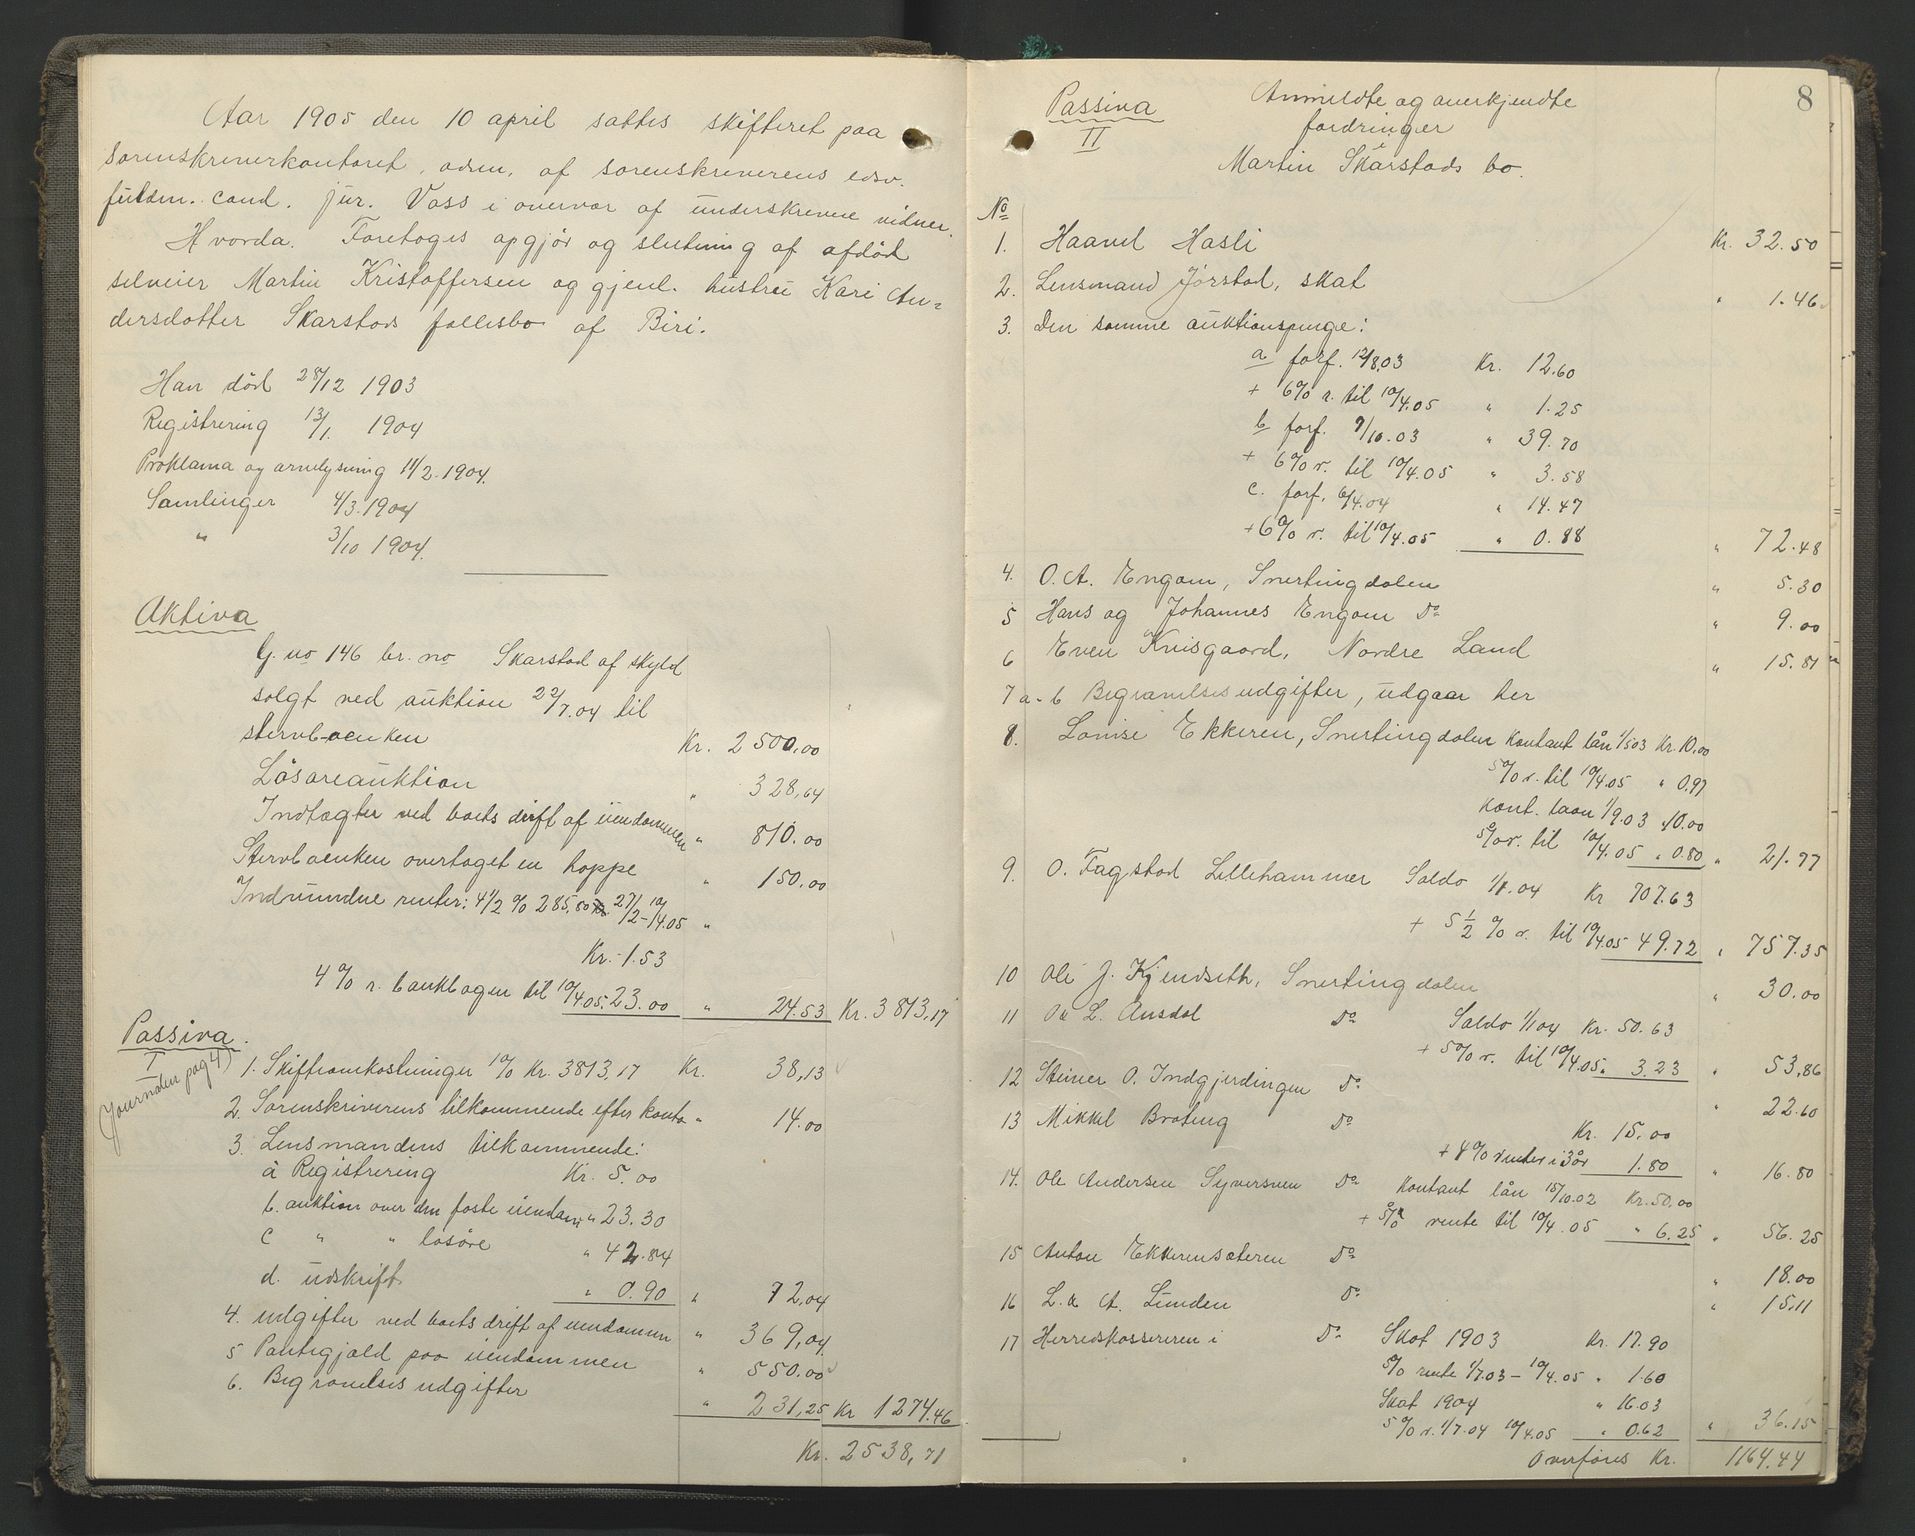 Aar 1905 den 10 april sattes skifteret paa
sorenskriverkontoret, adm. af sorenskriverens edsv.
fuldm. cand. jur. Voss i overvær af underskrevne vidner.
Hvorda. Foretoges opgjør og slutning af afdøde
selveier Martin Kristoffersen og gjenl. hustru Kari An=
dersdatter Skarstads fællesbo af Biri.
Han död 28/12 1903
Registrering 13/1. 1904
Proklama og arvelysning 11/2. 1904.
Samlinger 4/3. 1904
" 3/10 1904.
Aktiva
G. no 146 br. no Skarstad af skyld
solgt ved auktion 22/7.04 til
stervboenken Kr. 2500,00
Lösöreauktion " 328,64
Indtægter ved boets drift af eiendommen " 810.00
Stervboenken overtaget en hoppe " 150,00
Indvundne renter: 4 1/2 % 285,80 27/2-10/4.05 "
Kr. 1.53
4 % r. bankbogen til 10/4 05. 23.00 " 24.53 Kr. 3813,17
Passiva.
I
(Journalen pag 4)
1. Skifteomkostninger 1 0/0 Kr. 3813,17 Kr. 38,13
2. Sorenskriverens tilkommende efter konto " 14.00
3. Lensmandens tilkommende:
a Registrering Kr. 5.00
b. auktion over den faste eiendom " 23.30
c " " løsøre " 42.84
d. udskrift " 0.90 " 72,04
4. udgifter ved boets drift af eiendommen " 369,04
5 Pantegjæld paa eiendommen " 550.00
6. Begravelsesudgifter " 231,25 Kr 1274.46
Kr. 2538,71
8
Passiva
II
Anmeldte og anerkjendte
fordringer
Martin Skårstads bo.
No
1. Haavel Hasli Kr. 32.50
2. Lensmand Jörstad, skat " 1.46
3. Den samme auktionspenge:
a forf. 12/8.03 Kr. 12.60
+ 6% r. til 10/4.05 " 1.25
b forf. 9/10.03 " 39.70
+ 6% r. til 10/4.05 " 3.58
c. forf. 6/4.04 " 14.47
+ 6% r. til 10/4.05 " 0.88 " 72.48
4. O. A. Engom, Snertingdalen " 5.30
5 Hans og Johannes Engom Do " 9.00
6 Even Knisgaard, Nordre Land " 15.81
7 a-b Begravelsesudgifter, udgaar her
8. Lovise Ekkeren, Snertingdalen kontant lån 1/5 03 Kr. 10,00
5% r. til 10/4.05 " 0.97
kont. laan 1/9.03 " 10.00
5% r. til 10/4.05 " 0.80 " 21.77
9. O. Fagstad Lillehammer Saldo 1/1.04 Kr 707.63
+ 5 1/2 % r. til 10/4.05 49.72 " 757.35
10 Ole J. Kjendseth, Snertingdalen " 30.00
11 Ole L. Ausdal Do Saldo 1/1 04 Kr. 50.63
+ 5% r. til 10/4.05 " 3.23 " 53,86
12 Steiner O. Indgjerdingen Do " 22.60
13 Mikkel Bråteng Do Kr. 15.00
+ 4% renter i 3 år 1.80 " 16.80
14. Ole Andersen Syversven Do kontant lån 15/10.02 Kr. 50,00
+ 5% rente til 10/4.05 " 6.25 " 56.25
15 Anton Ekkerensæteren Do " 18.00
16 L. & A. Lunden Do " 15,11
17 Herredskassereren i Do Skat 1903 Kr. 17.90
5% rente 1/7.03 - 10/4.05 " 1.60
Skat 1904 " 16.03
5% r. 1/7.04 10/4.05 " 0.62 " 36.15
Overføres Kr. 1164.44